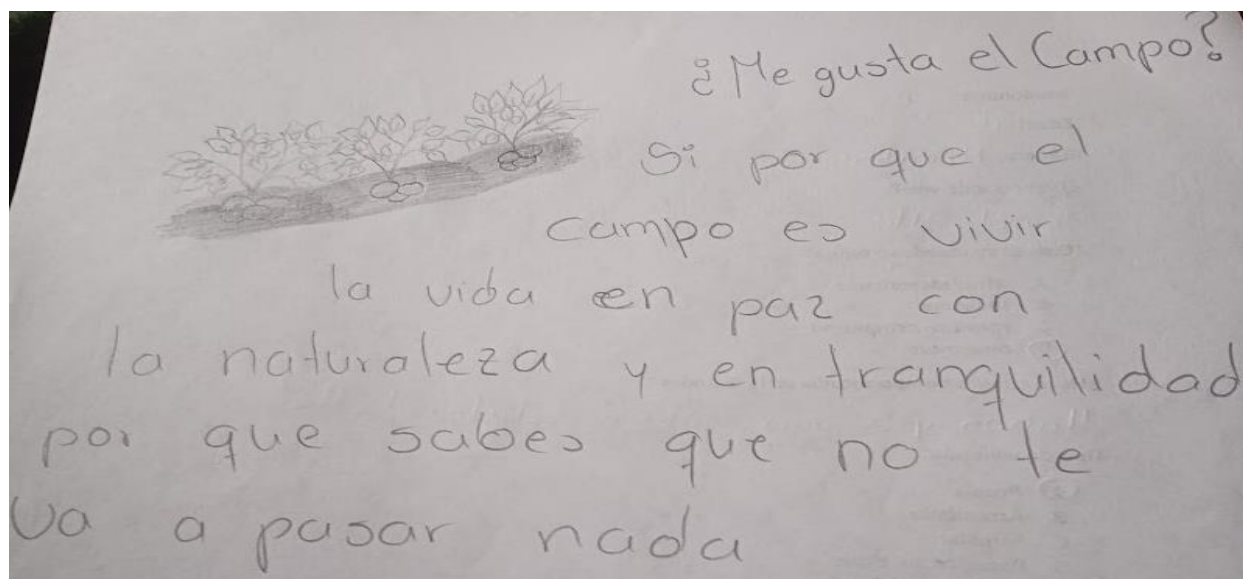 ¿Me gusta el Campo?
Si por que el
campo es vivir
la vida en paz con
la naturaleza y en tranquilidad
por que sabes que no te
va a pasar nada